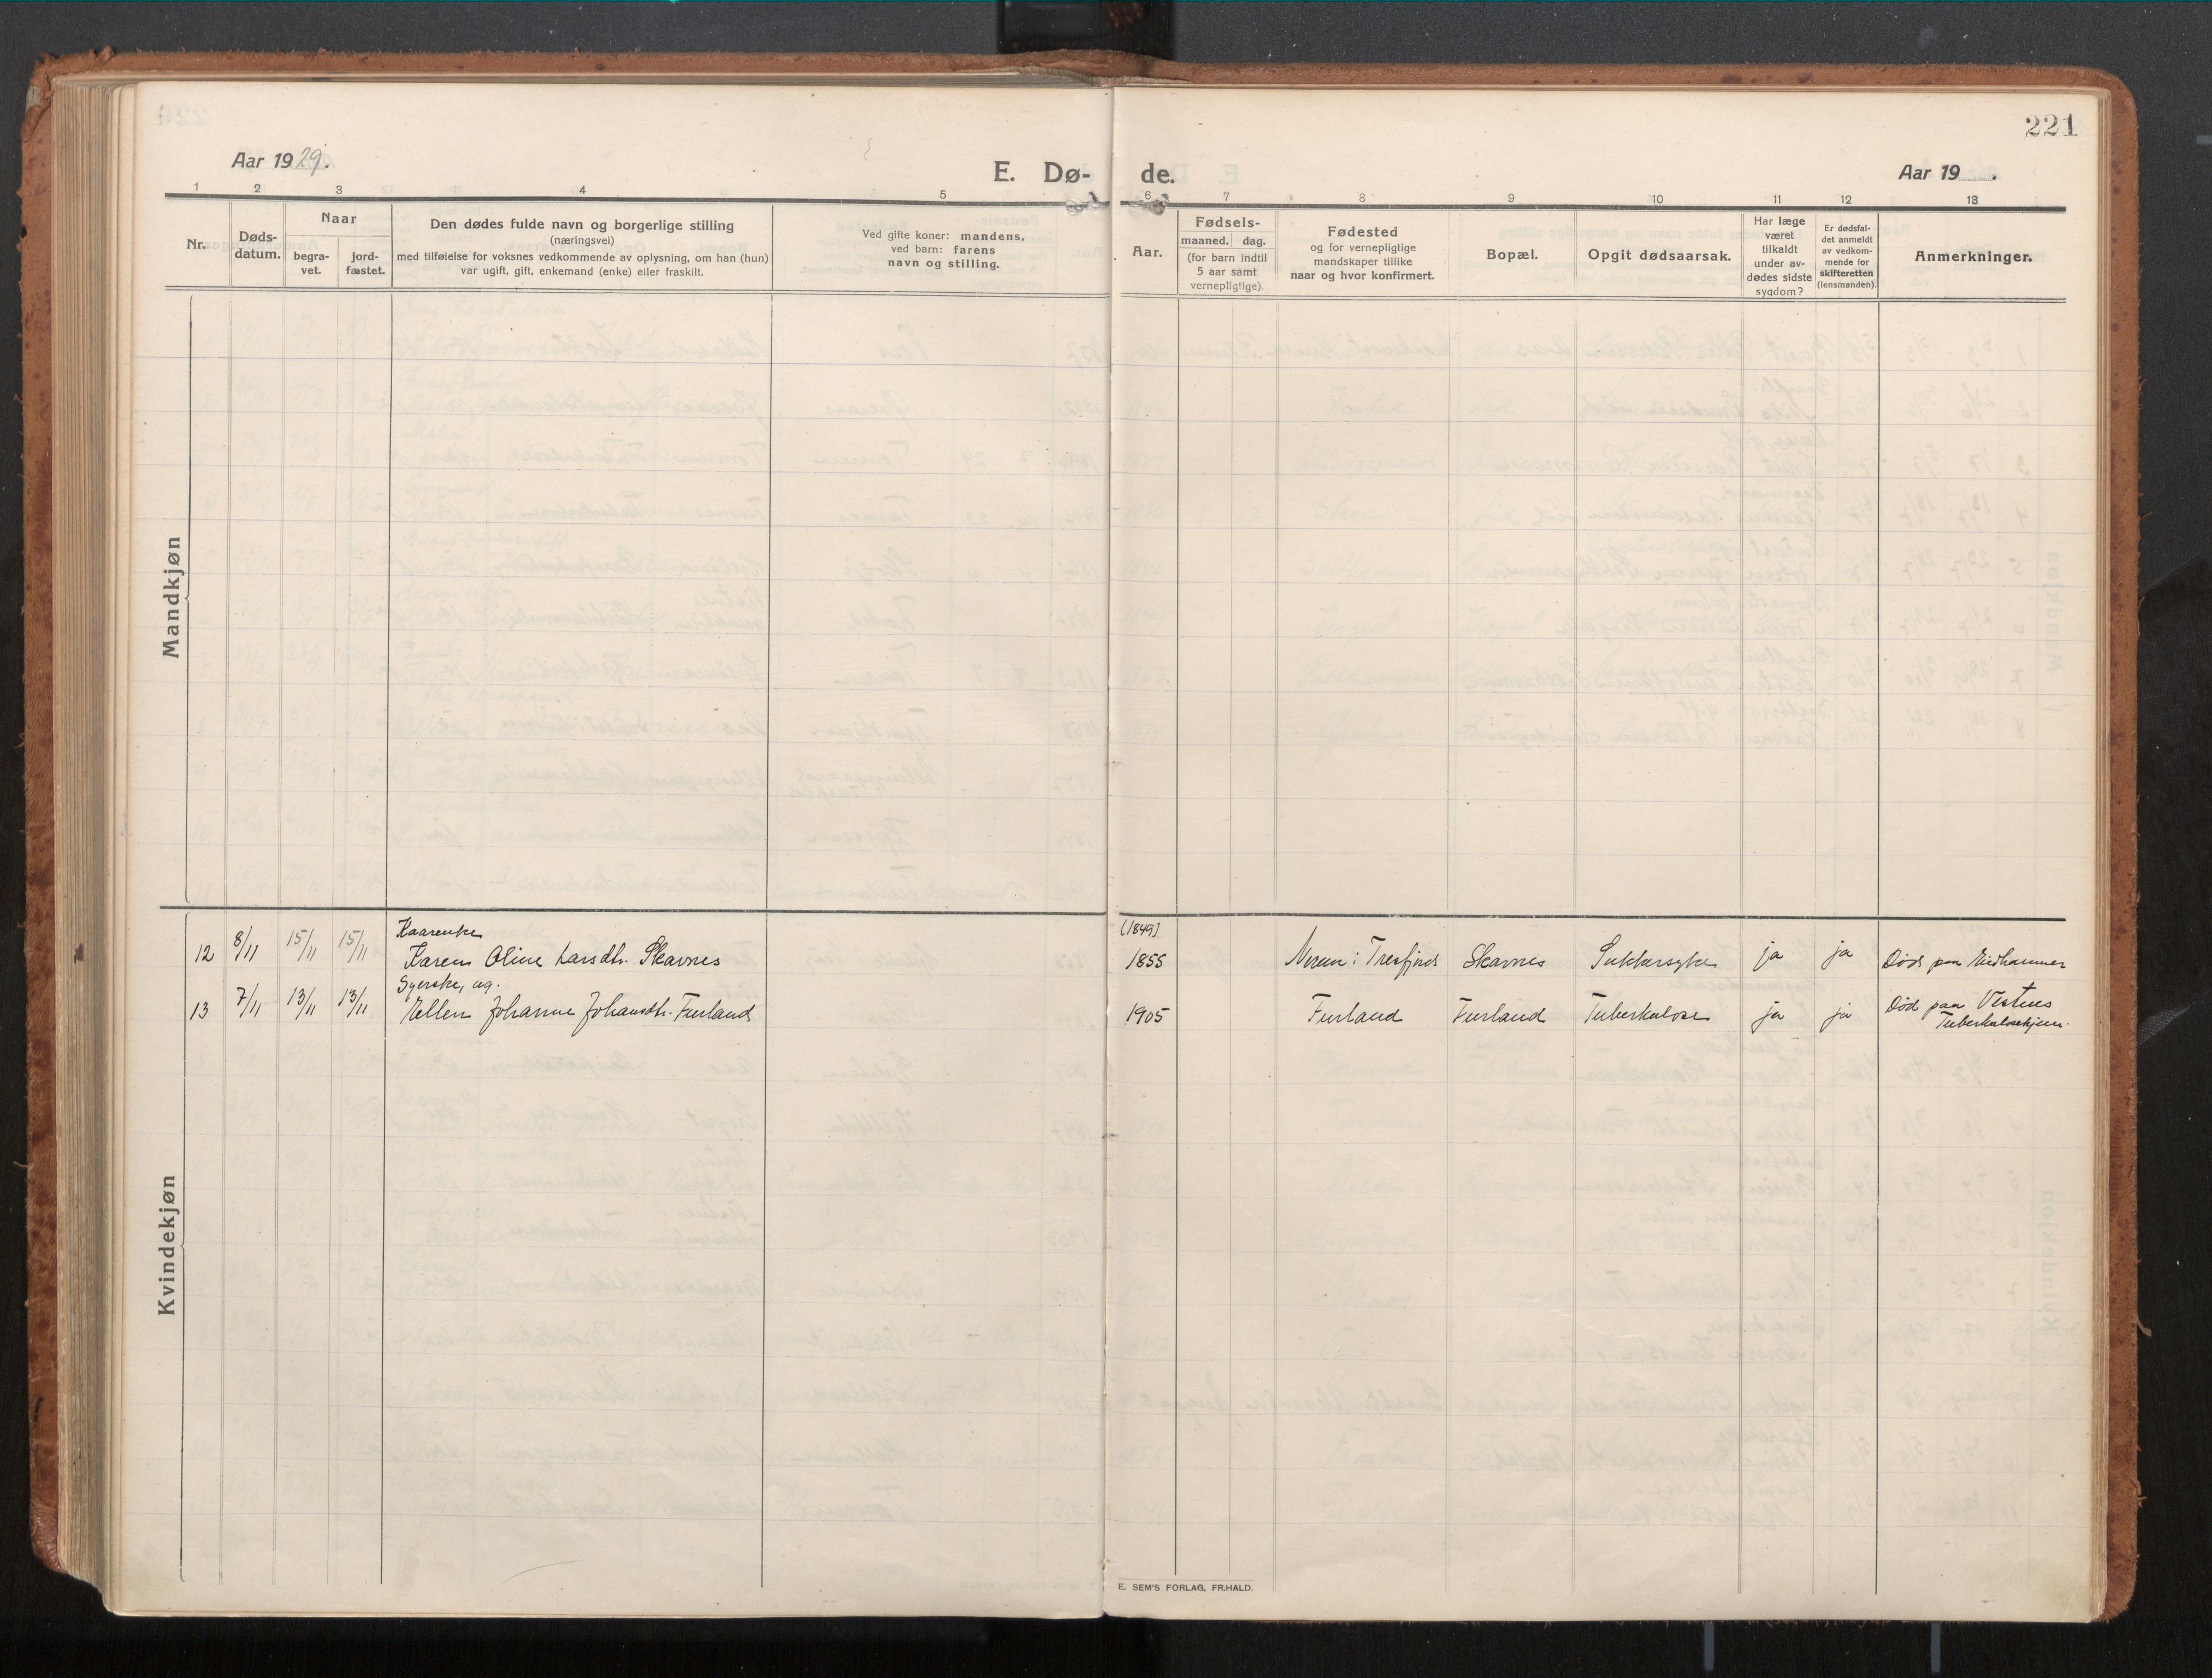 221
Aar 1929.
E. Dø-
de.
Aar 19 .
1 2 3 4 5 6 7 8 9 10 11 12 13
Nr.
Døds-
datum.
Naar
begra-
vet.
jord-
fæstet.
Den dødes fulde navn og borgerlige stilling
(næringsvei)
med tilføielse for voksnes vedkommende av oplysning, om han (hun)
var ugift, gift, enkemand (enke) eller fraskilt.
Ved gifte koner: mandens,
ved barn: farens
navn og stilling.
Aar.
Fødsels-
maaned. dag.
(for barn indtil
5 aar samt
vernepligtige).
Fødested
og for vernepligtige
mandskaper tillike
naar og hvor konfirmert.
Bopæl.
Opgit dødsaarsak.
Har læge
været
tilkaldt
under av-
dødes sidste
sygdom?
Er dødsfal-
det anmeldt
av vedkom-
mende for
skifteretten
(lensmanden).
Anmerkninger.
Mandkjøn
Kvindekjøn
Kaarenke (1849)
12 8/11 15/11 15/11 Karen Oline Larsdtr. Skavnes 1855 i Tresfjord Skavnes Sukkersyke ja ja Død paa
Syerske, ug.
13 7/11 13/11 13/11 Ellen Johanne Johansdtr. Furland 1905 Furland Furland Tuberkulose ja ja Død paa Vestnes
Tuberkulosehjem.
E. SEM'S FORLAG, FR.HALD.